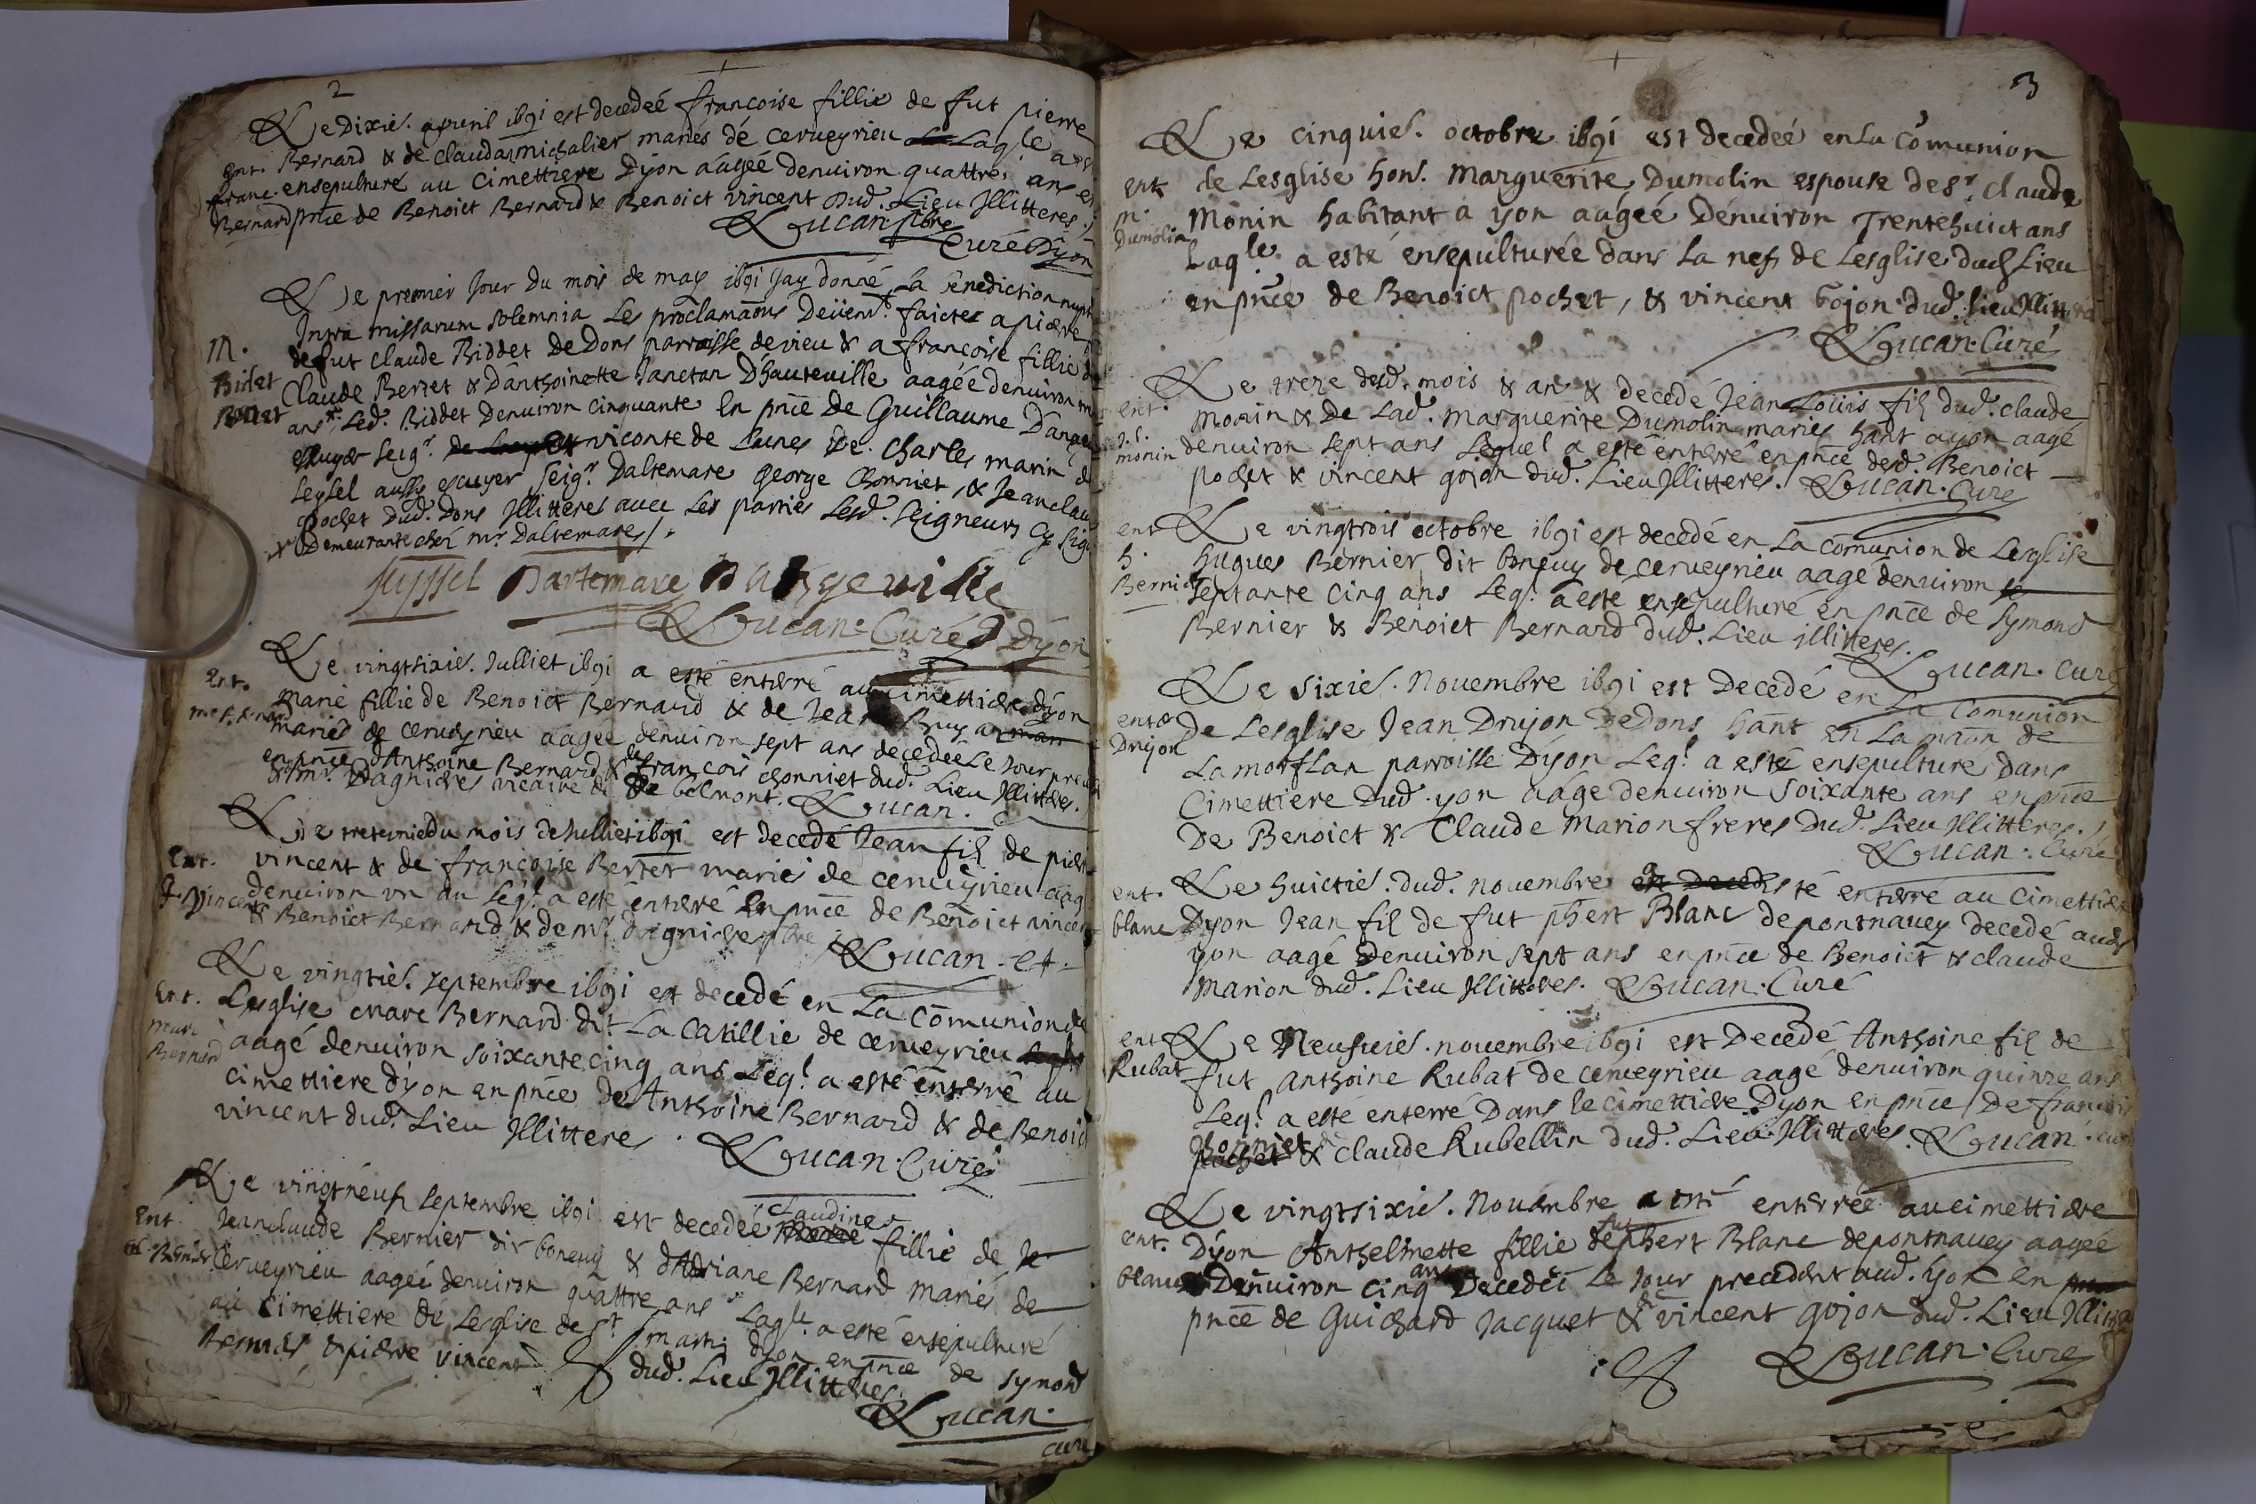 2
Le Dixie. apvril 1691 est decedeé françoise fillie de fut pierre
Ent. Bernard & de Clauda michalier mariés de cerueyrieu Laqle a
franc. ensepulturé au Cimettiere Dyon aágéé denuiron quattre ans en
Bernard pnce de Benoict Bernard & Benoict vincent Dud. Lieu Jllitteres.
Lucan pbre
Curé Dyon
Le premier Jour Du mois de may 1691 Jay donné La benediction
Intra missarum solemnia Les proclamaons faictes a pierre
M. de fut Claude Biddet De Dons parroisse de vieu & a françoise fillie
Bidet Claude Bertet & Danthoinette Janctan Dhauteuille aagée denuiron
Bertet ans Led. Biddet Denuiron Cinquante En pnce De Guillaume
Escuyer Seigr. viconte de Lunes & Charles marin
Seyssel aussy escuyer Seigr Daltemare George Chonniet, & Jean
pochet Dud. Dons Jllitteres auec Les parties Lesd. Seigneurs
& Demeurante chez mr. Daltemare
Seyssel Dartemare Dangeuille
Lucan Curé Dyon
Le vingtsixie. Julliet 1691 a esté enterré au cimettiere dyon
Ent. Marie fillie de Benoict Bernard & de
mariés de cerueyrieu aagée denuiron sept ans decedée Le Jour
en pnce d'Anthoine Bernard & françois chonniet dud. Lieu Jllitteres.
& mr. Dagnieres vicaire de belmont. Lucan.
Le du mois de Julliet 1691 est decedé Jean fil de
Ent. vincent & de françoise Bertet mariés de cerueyrieu
J. vincent denuiron vn an Leql. a esté enterré En pnce de Benoict
& Benoict Bernard & de mr. Lucan
Le vingtie. septembre 1691 est decedé en La Comunion de
Ent. Lesglise marc Bernard dit La Catillie de cerueyrieu
Marc aagé denuiron soixante cinq ans Leql. a esté enterré au
Bernard cimettiere dyon en pnce de Anthoine Bernard & de Benoict
vincent dud. Lieu Jllitteres. Lucan. Curé
Le vingtneuf septembre 1691 est decedée Claudine fillie de
Ent. Jeanclaude Bernier dit boneuy & dAdriane Bernard mariés de
Cerueyrieu aagéé denuiron quattre ans Laqle. a esté ensepulturé
au Cimettiere de Lesglise de St. martin dyon en pnce de Symond
& pierre vincent dud. Lieu Jllitteres
Lucan.
curé
3
Le cinquie. octobre 1691 est decedeé en La Comunion
ent. de Lesglise hon. Marguerite Dumolin espouse de Sr. Claude
M. Monin habitant a yon aágéé Denuiron Trentehuict ans
Dumolin Laqle. a esté ensepulturée dans La nef de Lesglise dud. Lieu
en pnce de Benoict pochet, & vincent Gojon dud. lieu Jllitteres
Lucan. Curé
Le treze dud. mois & an & decedé Jean Louis fil dud. claude
ent. Monin & de Lad. Marguerite Dumolin mariés hant a yon aagé
J. l. denuiron sept ans Lequel a esté enterré en pnce desd. Benoict
monin pochet & vincent gojon dud. Lieu Jllitteres. Lucan. Curé
ent. Le vingtrois octobre 1691 est decedé en La Comunion de Lesglise
h. hugues Bernier dit boneuy de cerueyrieu aagé denuiron
Bernier septante cinq ans Leql. a esté ensepulturé en pnce de Symond
Bernier & Benoict Bernard dud. Lieu illitteres.
Lucan. curé
Le sixie. Nouembre 1691 est Decedé en La Comunion
ent. De Lesglise Jean Drujon De Dons hant en La maon de
Drujon Lamorflan parroisse Dyon Leql. a esté ensepulture dans
Cimettiere Dud. yon aágé denuiron soixante ans en pnce
De Benoict & Claude Marion freres Dud. Lieu Jllitteres.
Lucan. Curé
ent. Le huictie. dud. nouembre a esté enterré au Cimettiere
blanc Dyon Jean fil de fut phert Blanc de pontnauey decedé aud.
yon aagé denuiron sept ans en pnce de Benoict & claude
Marion dud. Lieu Jllitteres. Lucan. Curé
ent. Le Neufuie. nouembre 1691 est Decedé Anthoine fil de
Rubat fut Anthoine Rubat de cerueyrieu aagé denuiron quinze ans
Leql. a esté enterré Dans le cimettiere Dyon en pnce De françois
Chonniet & claude Rubellin dud. Lieu Jllitteres. Lucan. curé
Le vingtsixie. Nouembre a esté enterrée au cimettiere
ent. Dyon Anthelmette fillie de fut phert Blanc de pontnauey aagéé
blanc Denuiron cinq ans Decedéé Le Jour precedent aud. yon en
pnce de Guichard Jacquet & de vincent gojon dud. Lieu Jllitteres
Lucan. Curé